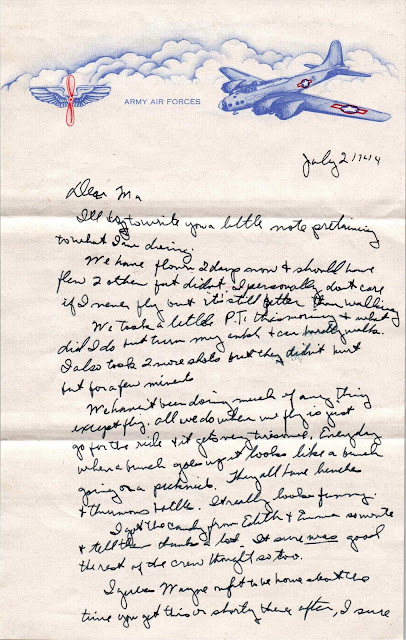 ARMY AIR FORCES
July 2 1944
Dear Ma
I'll try to write you a little note pertaining
to what I am doing.
We have flown 2 days now & should have
flew 2 other but didnt. I personally dont care
if I never fly but it's still better than walking
We took a little P.T. this morning & what
did I do but turn my ankle & can hardly walk.
I also took 2 more shots but they didn't hurt
but for a few minets
We haven't been doing much if any thing
except fly. all we do when we fly is just
go for the ride & it gets very tiresome. Everyday
when a bunch goes up it looks like a bunch
going on a picknick. They all have lunches
& thurmous bottles. It really looks funny.
I got the candy from Edith & Emma so write
& tell them thanks a lot. It sure was good
the rest of the crew thought so too.
I guess Wayne ought to be home about the
time you get this or shortly there after, I sure